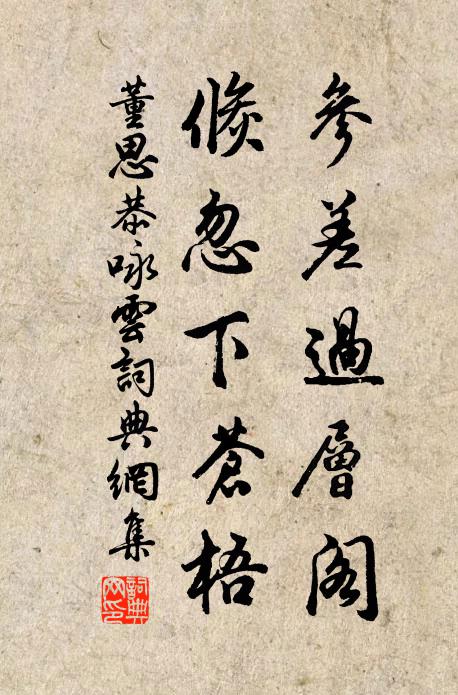 參差過層閣
倏忽下蒼梧
董思恭咏雲詞典網集
詞典
网印